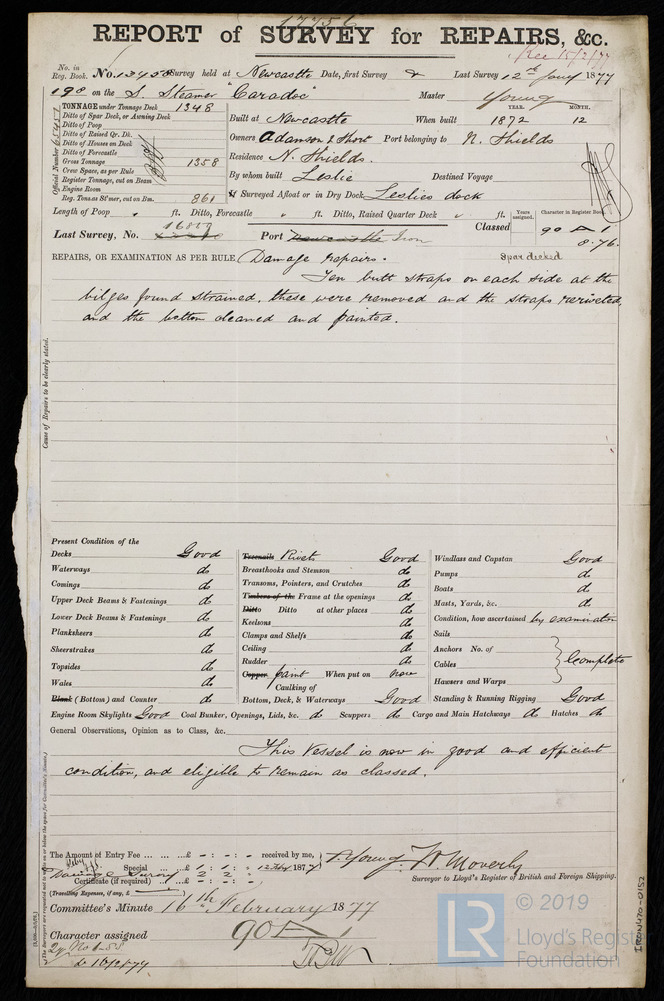 REPORT of SURVEY for REPAIRS, &c.
Rec 15/2/77
No. in Reg. Book. No. 13458 Survey held at Newcastle Date, first Survey & Last Survey 12th Jany 1877
198 on the S. Steamer "Caradoc" Master Young
TONNAGE under Tonnage Deck 1348
Ditto of Spar Deck, or Awning Deck
Ditto of Poop
Ditto of Raised Qr. Dk.
Ditto of Houses on Deck
Ditto of Forecastle
Gross Tonnage 1358
Crew Space, as per Rule
Register Tonnage, cut on Beam
Engine Room
Reg. Ton. as St'mer, cut on Bm. 861
Official Number
YEAR. MONTH.
Built at Newcastle When built 1872 12
Owners Adamson & Short Port belonging to N. Shields
Residence N. Shields.
By whom built Leslie Destined Voyage
If Surveyed Afloat or in Dry Dock Leslies dock
Length of Poop " ft. Ditto, Forecastle " ft. Ditto, Raised Quarter Deck " ft.
Years assigned. Character in Register Book
Last Survey, No. Port Newcastle Iron Classed 90 A 1
8.76.
REPAIRS, OR EXAMINATION AS PER RULE Damage repairs. Spar decked
Ten butt straps on each side at the
bilges found strained, these were removed and the straps reriveted,
and the bottom cleaned and painted.
Cause of Repairs to be clearly stated.
Present Condition of the
Decks Good
Waterways do
Comings do
Upper Deck Beams & Fastenings do
Lower Deck Beams & Fastenings do
Planksheers do
Sheerstrakes do
Topsides do
Wales do
Plank (Bottom) and Counter do
Treenails Rivets Good
Breasthooks and Stemson do
Transoms, Pointers, and Crutches do
Timbers of the Frame at the openings do
Ditto Ditto at other places do
Keelsons do
Clamps and Shelfs do
Ceiling do
Rudder do
Copper paint When put on now
Caulking of
Bottom, Deck, & Waterways Good
Windlass and Capstan Good
Pumps do
Boats do
Masts, Yards, &c. do
Condition, how ascertained by examination
Sails
Anchors No. of
Cables Complete
Hawsers and Warps
Standing & Running Rigging Good
Engine Room Skylights Good Coal Bunker, Openings, Lids, &c. do Scuppers do Cargo and Main Hatchways do Hatches do
General Observations, Opinion as to Class, &c.
This Vessel is now in good and efficient
condition, and eligible to remain as classed.
The Amount of Entry Fee ... £ - : - : - received by me,
Special ... £ 1 : 1 : - 12 Feby 1877
Damage Survey 2 2
Certificate (if required) ... £ - : - : -
(Travelling Expenses, if any, £
T. Young. W. Moverly
Surveyor to Lloyd's Register of British and Foreign Shipping.
Committee's Minute 16th February 1877
Character assigned 90 A 1
16/2/77
IRON420-0152
© 2019
LR
Lloyd's Register
Foundation